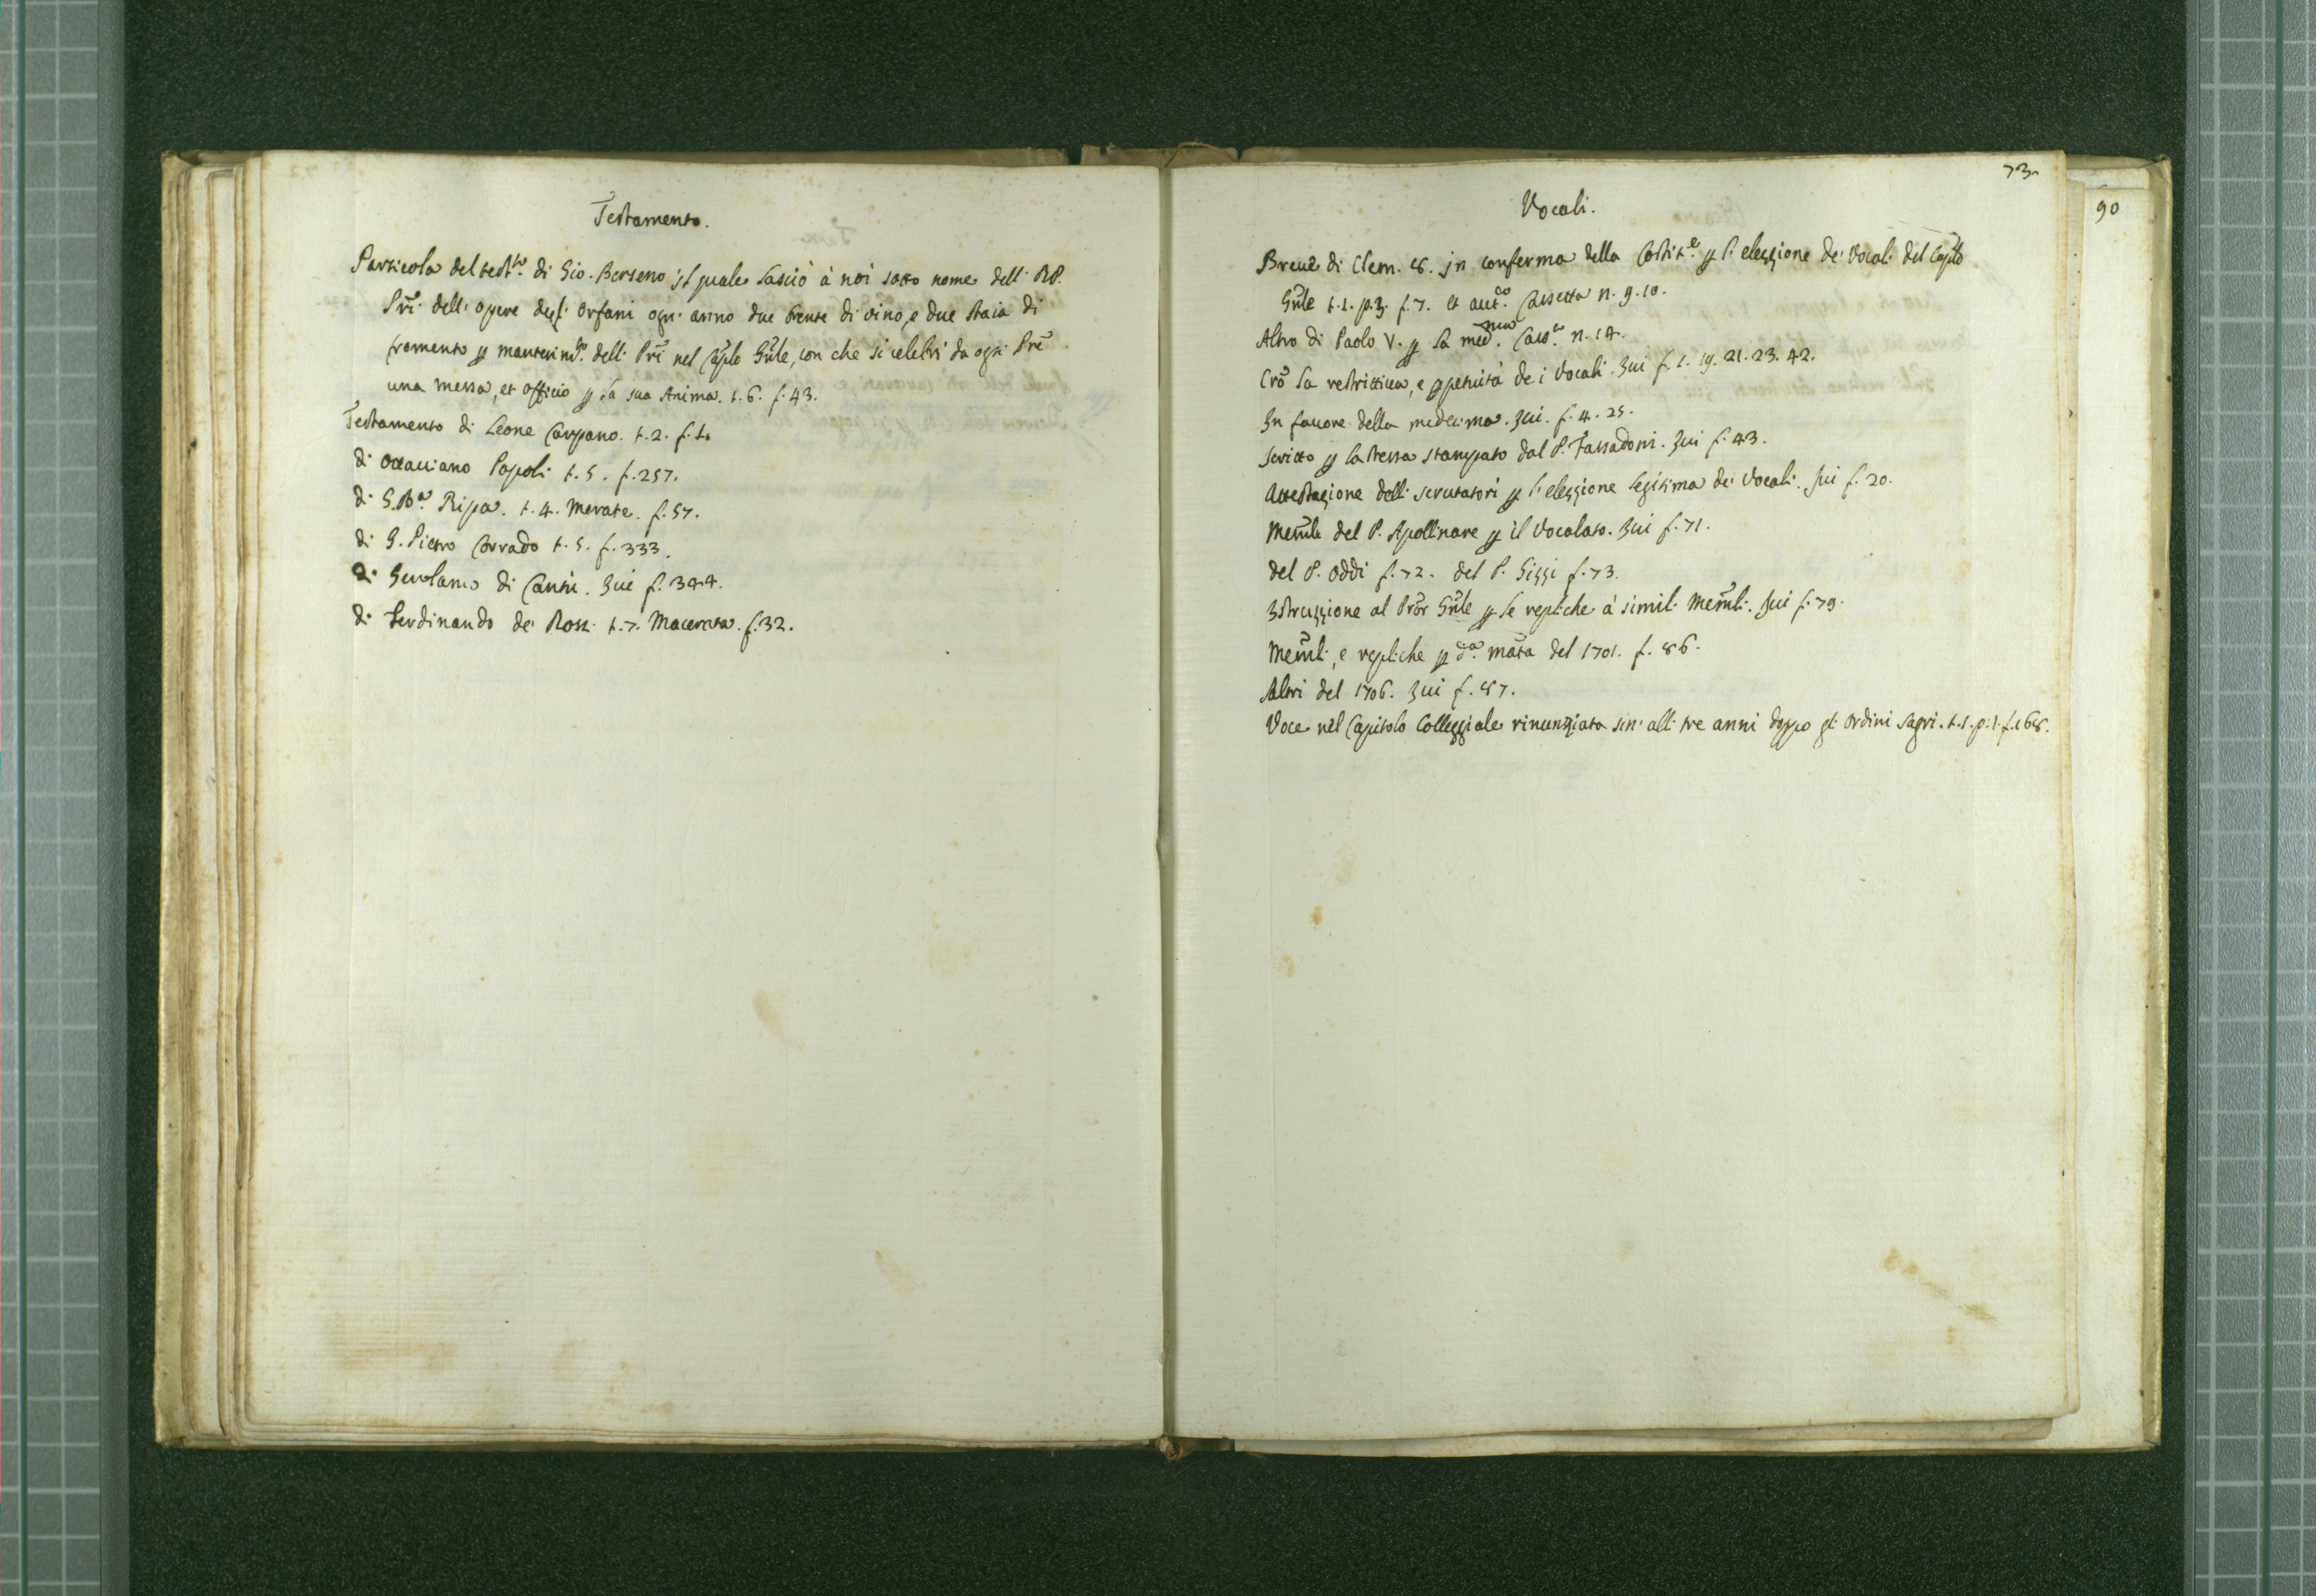 Testamento.
Particola del test.to di Gio. Berseno il quale lasciò à noi sotto nome delli RR.
Pri dell'opere degl'orfani ogn'anno due brente di vino, e due staia di
fromento p mantenim.to delli Pri nel Caplo Gnle, con che si celebri da ogni Pre
una messa, et officio p la sua Anima. t.6. f.43.
Testamento di Leone Carpano. t.2. f.1.
di Ottaviano Papoli t.5. f.257.
di G.Ba. Ripa. t.4. Merate. f.57.
di G. Pietro Corrado t.5. f.333.
di Girolamo di Cantù. Iui f.344.
di Ferdinando de Rossi t.7. Macerata. f.32.
73
90
Vocali.
Breue di Clem. 8. in conferma della p l'elezzione de' Vocali del Caplo
Gnle t.1. p.3. f.7. et aut.co Cassetta n. 9.10.
Altro di Paolo V. p la med.ma n. 14.
Crò la restrittiua, e ppetuità de i Vocali. Iui f.1. 19. 21. 23. 42.
In fauore della medesima. Iui. f.4. 25.
Scritto p la stessa stampato dal P. Tassadoni. Iui f.43.
Attestazione delli scrutatori p l'elezzione legitima de' Vocali. Iui f.20.
Memle del P. Apollinare p il Vocalato. Iui f.71.
del P. Oddi f.72. del P. Gizzi f.73.
Istruzzione al Pror Gnle p le repliche à simili Memli. Iui f.79.
Memli, e repliche p d.a mata del 1701. f.86.
Altri del 1706. Iui f.87.
Voce nel Capitolo Colleggiale rinunziata sin' alli tre anni doppo gli ordini sagri. t.1. p.1. f.168.